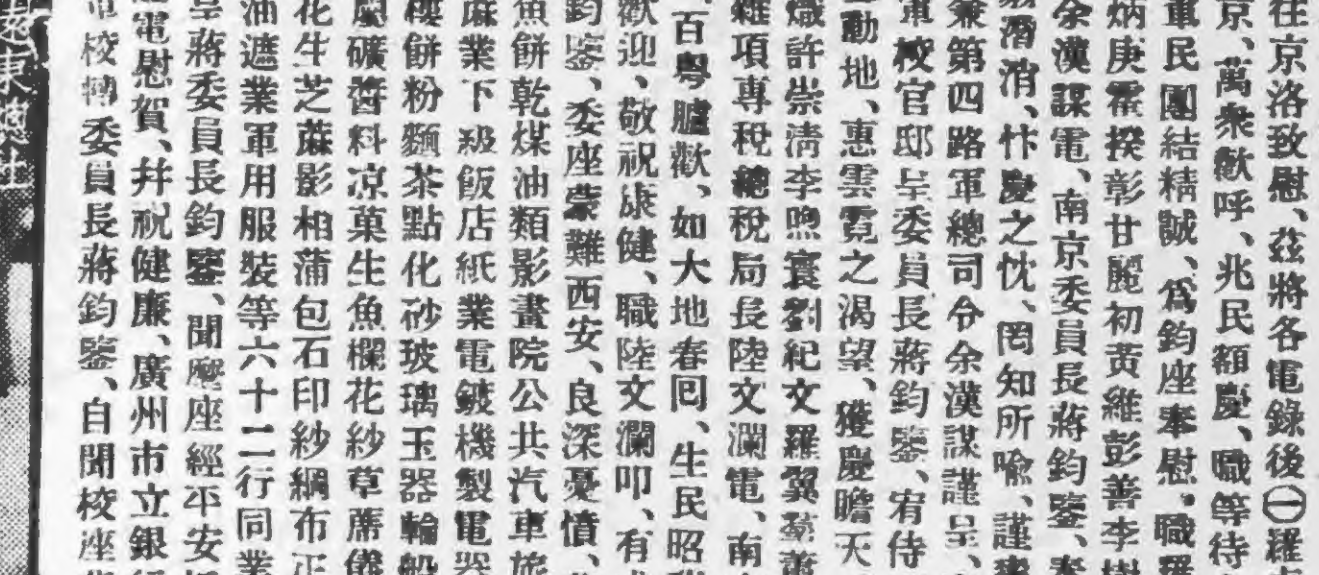 往京洛致慰、茲將各電錄後㊀羅
京、萬衆歡呼、兆民額慶、職等待
軍民團結精誠、爲鈞座奉慰、職羅
炳庚霍揆彰甘麗初黄維彭善李樹
余漢謀電、南京委員長蔣鈞鑒、
消、忭慶之忱、罔知所喩、謹
兼第四路軍總司令余漢謀謹呈、
軍校官邸呈委員長蔣鈞鑒、宥侍
動地、惠雲霓之渴望、獲慶瞻天
熾許崇淸李煦寰劉紀文羅翼羣蕭
雜項專稅總稅局長陸文瀾電、南
百粤臚歡、如大地春回、生民昭
歡迎、敬祝康健、職陸文瀾叩、有
鈞鑒、委座蒙難西安、良深憂憤、
魚餅乾煤油類影畫院公共汽車旅
麻業下級飯店紙業電鍍機製電器
樓餅粉麵茶點化砂玻璃玉器輪船
礦醬料凉菓生魚欄花紗草蓆儀
花生芝蔴影相蒲包石印紗綢布正
油遮業軍用服裝等六十二行同業
呈蔣委員長鈞鑒、聞座經平安
電慰賀、幷祝健康、廣州市立銀
校轉委員長蔣鈞鑒、自聞校座
東社